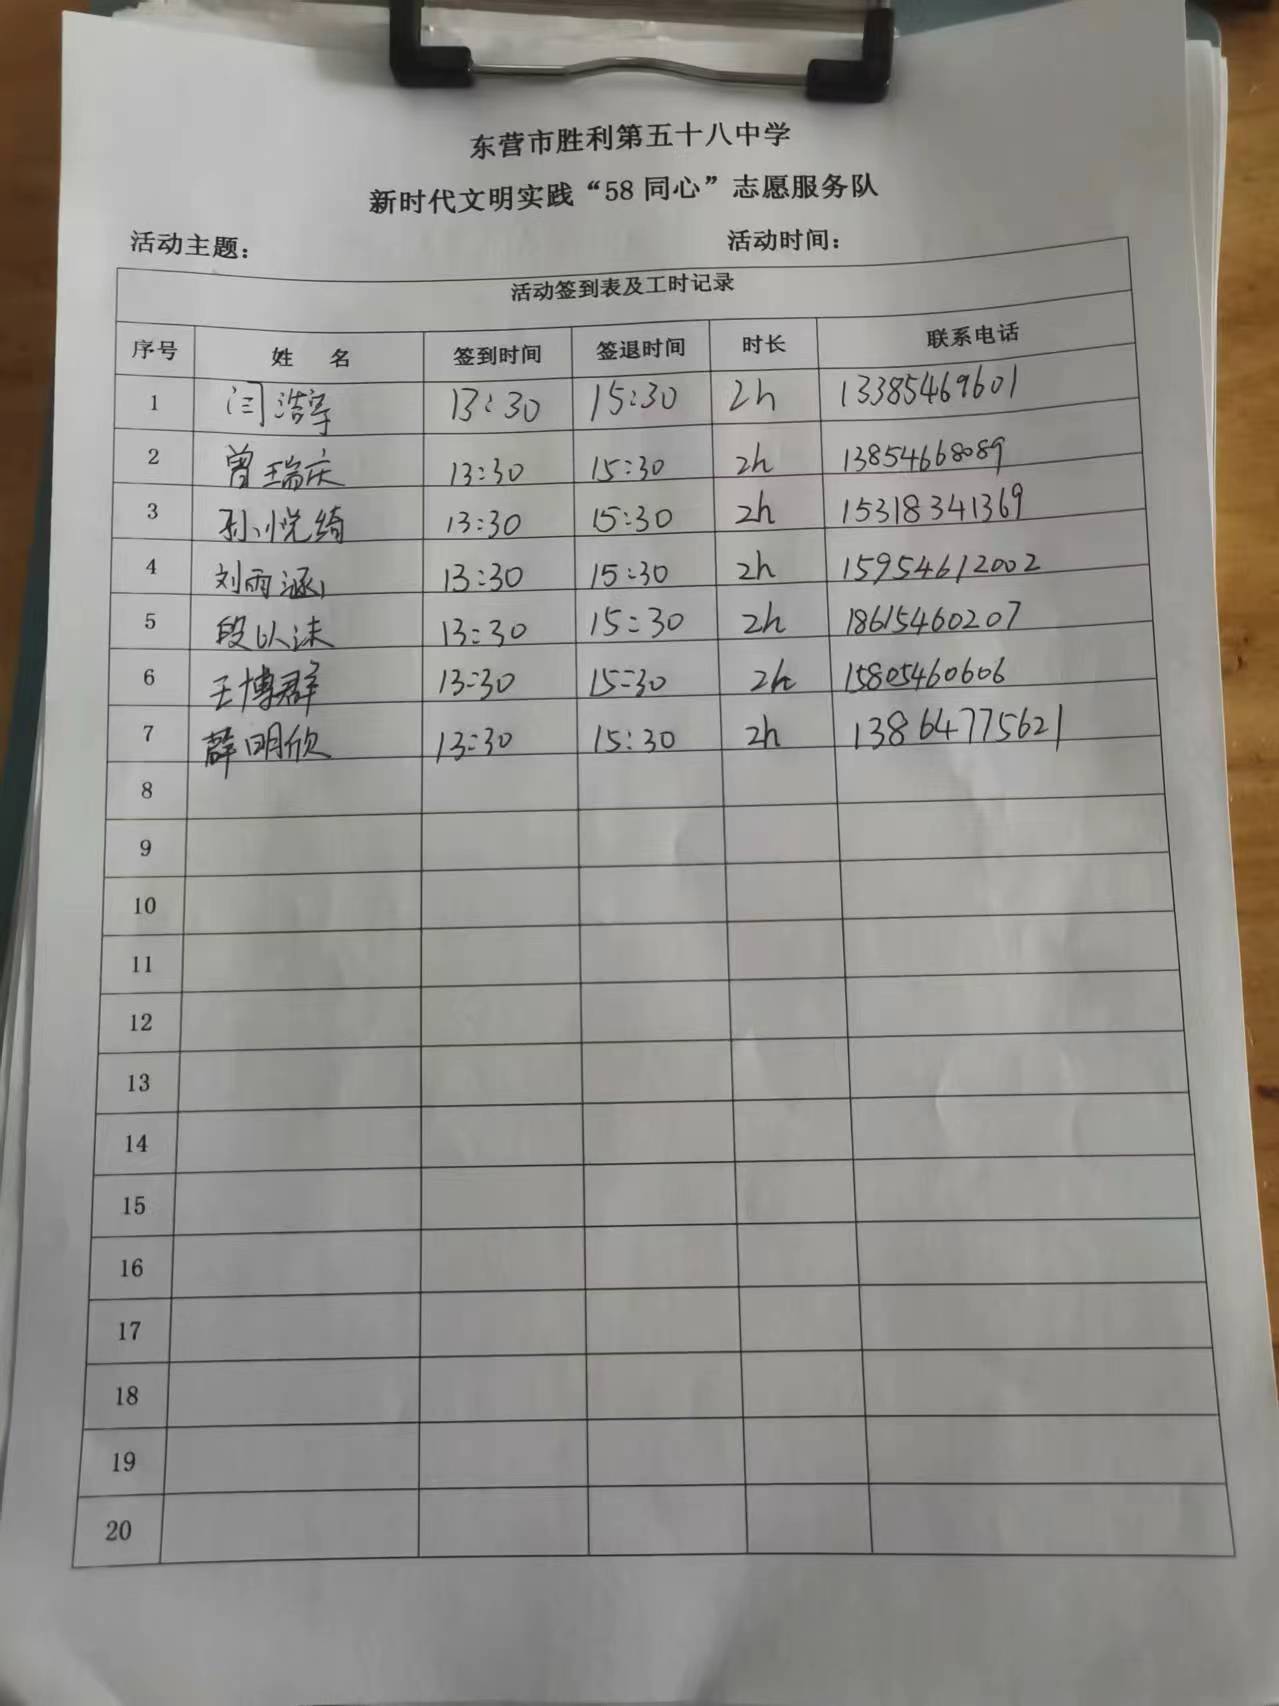 东营市胜利第五十八中学
新时代文明实践“58 同心”志愿服务队
活动主题： 活动时间：
活动签到表及工时记录
序号 姓 名 签到时间 签退时间 时长 联系电话
1 闫浩宇 13:30 15:30 2h 13385469601
2 曾瑞庆 13:30 15:30 2h 13854668089
3 孙悦绮 13:30 15:30 2h 15318341369
4 刘雨涵 13:30 15:30 2h 15954612002
5 段以沫 13:30 15:30 2h 18615460207
6 王博群 13:30 15:30 2h 15805460606
7 薛明欣 13:30 15:30 2h 13864775621
8
9
10
11
12
13
14
15
16
17
18
19
20